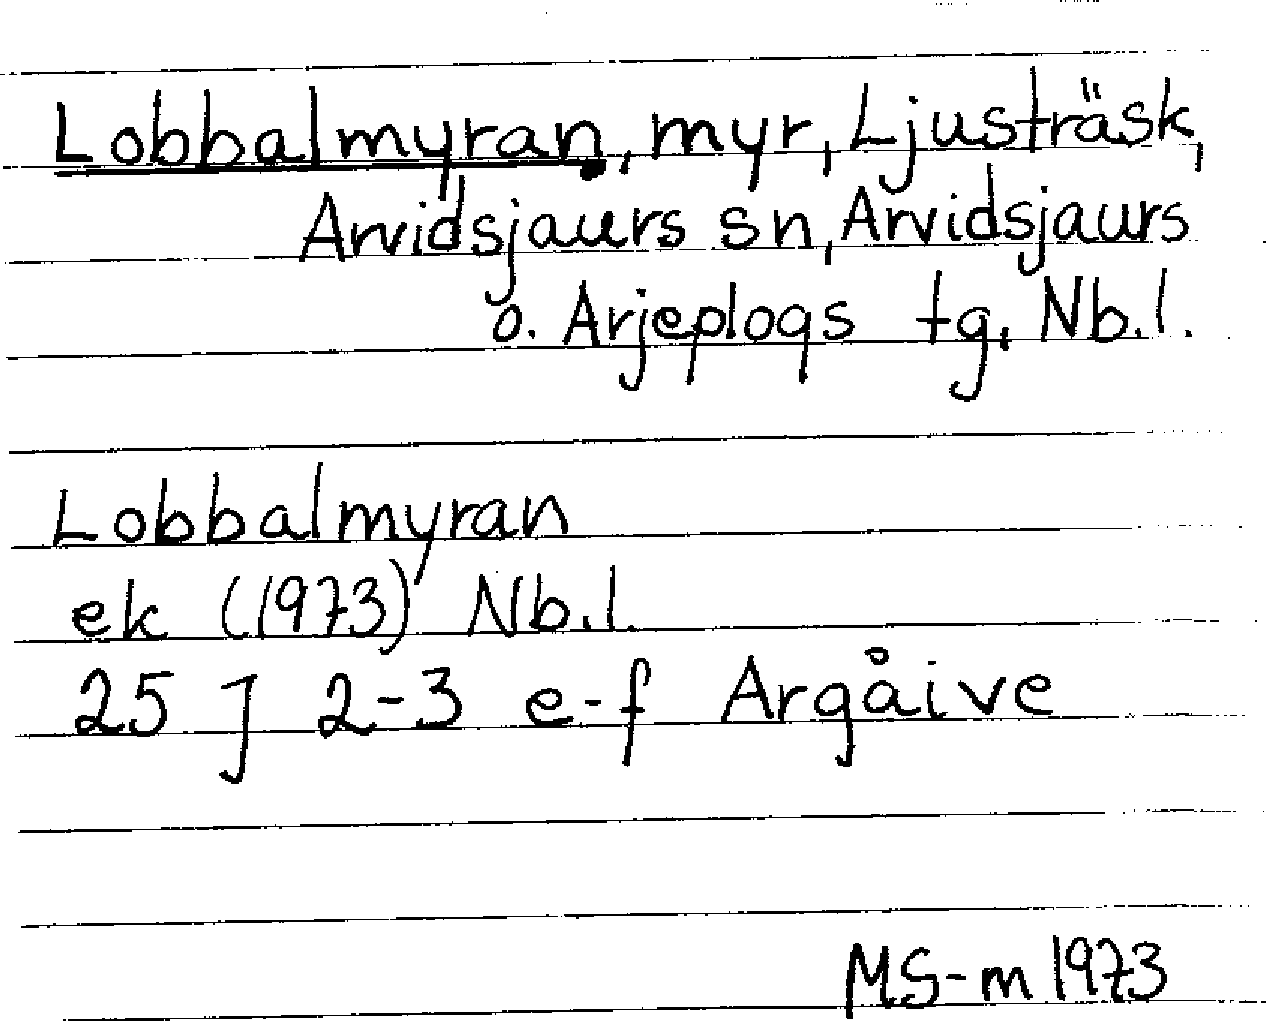 Lobbalmyran, myr, Ljusträsk,
Arvidsjaurs sn, Arvidsjaurs
o. Arjeplogs tg, Nb.l.
Lobbalmyran
ek (1973) Nb.l.
25 J 2-3 e-f Argåive
MS-m 1973